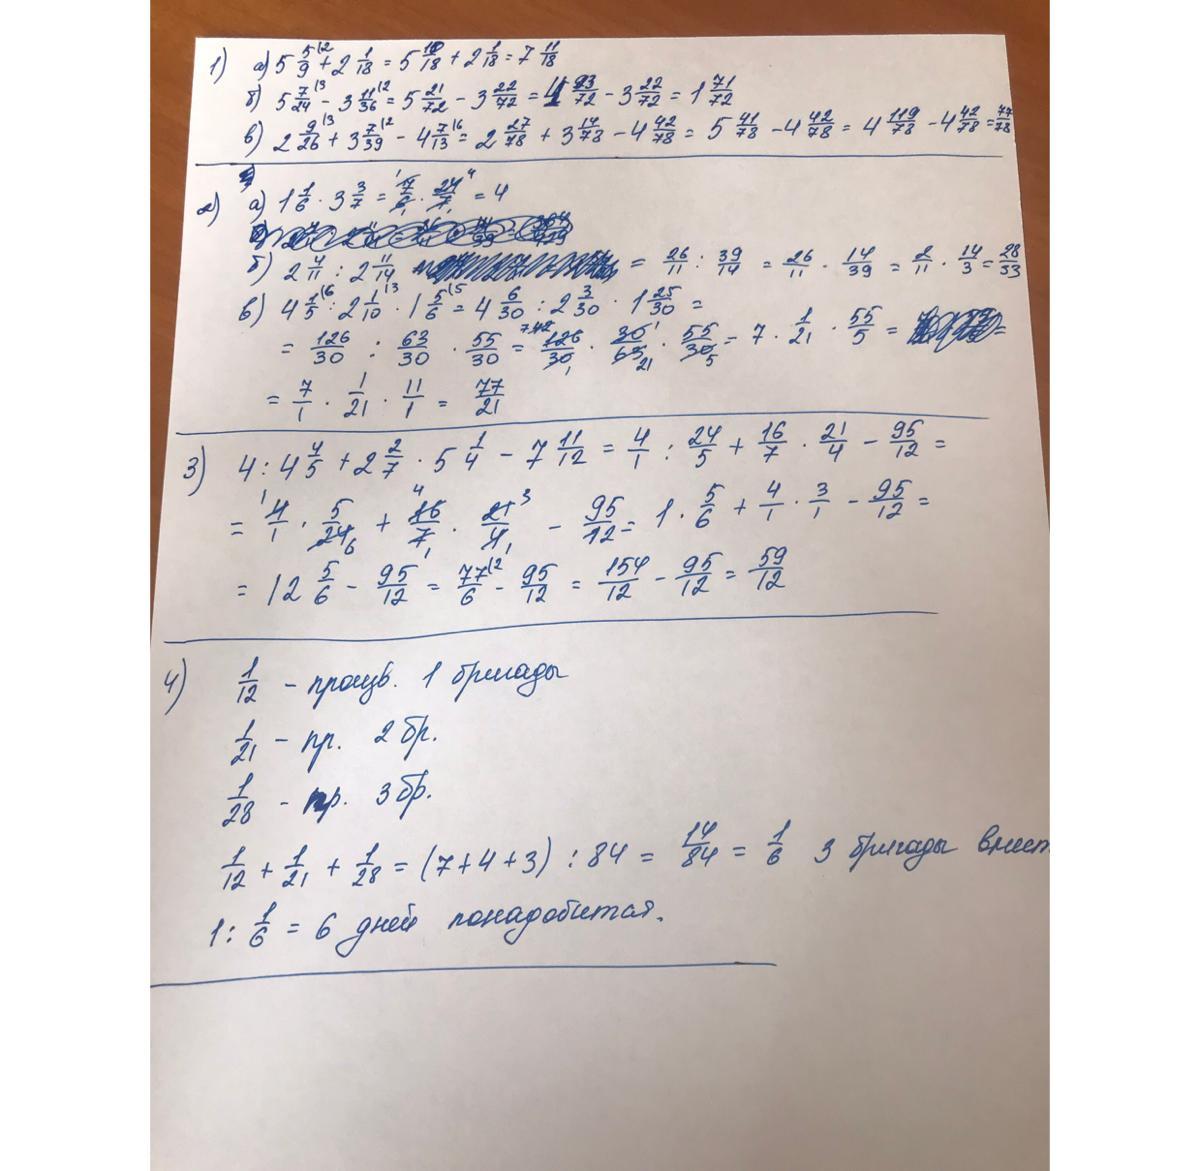 1) а) 5 5/9 + 2 1/18 = 5 10/18 + 2 1/18 = 7 11/18
б) 5 7/24 - 3 11/36 = 5 21/72 - 3 22/72 = 4 93/72 - 3 22/72 = 1 71/72
в) 2 9/26 + 3 7/39 - 4 7/13 = 2 27/78 + 3 14/78 - 4 42/78 = 5 41/78 - 4 42/78 = 4 119/78 - 4 42/78 = 77/78
2) а) 1 1/6 · 3 3/7 = 7/6 · 24/7 = 4
б) 2 4/11 : 2 11/14 = 26/11 : 39/14 = 26/11 · 14/39 = 2/11 · 14/3 = 28/33
в) 4 1/5 : 2 1/10 · 1 5/6 = 4 6/30 : 2 3/30 · 1 25/30 =
= 126/30 : 63/30 · 55/30 = 126/30 · 30/63 · 55/30 = 7 · 1/21 · 55/5 =
= 7/1 · 1/21 · 11/1 = 77/21
3) 4 : 4 4/5 + 2 2/7 · 5 1/4 - 7 11/12 = 4/1 : 24/5 + 16/7 · 21/4 - 95/12 =
= 4/1 · 5/24 + 16/7 · 21/4 - 95/12 = 1 · 5/6 + 4/1 · 3/1 - 95/12 =
= 12 5/6 - 95/12 = 77/6 - 95/12 = 154/12 - 95/12 = 59/12
4) 1/12 - произв. 1 бригады
1/21 - пр. 2 бр.
1/28 - пр. 3 бр.
1/12 + 1/21 + 1/28 = (7+4+3) : 84 = 14/84 = 1/6 3 бригады вмест
1 : 1/6 = 6 дней понадобится.